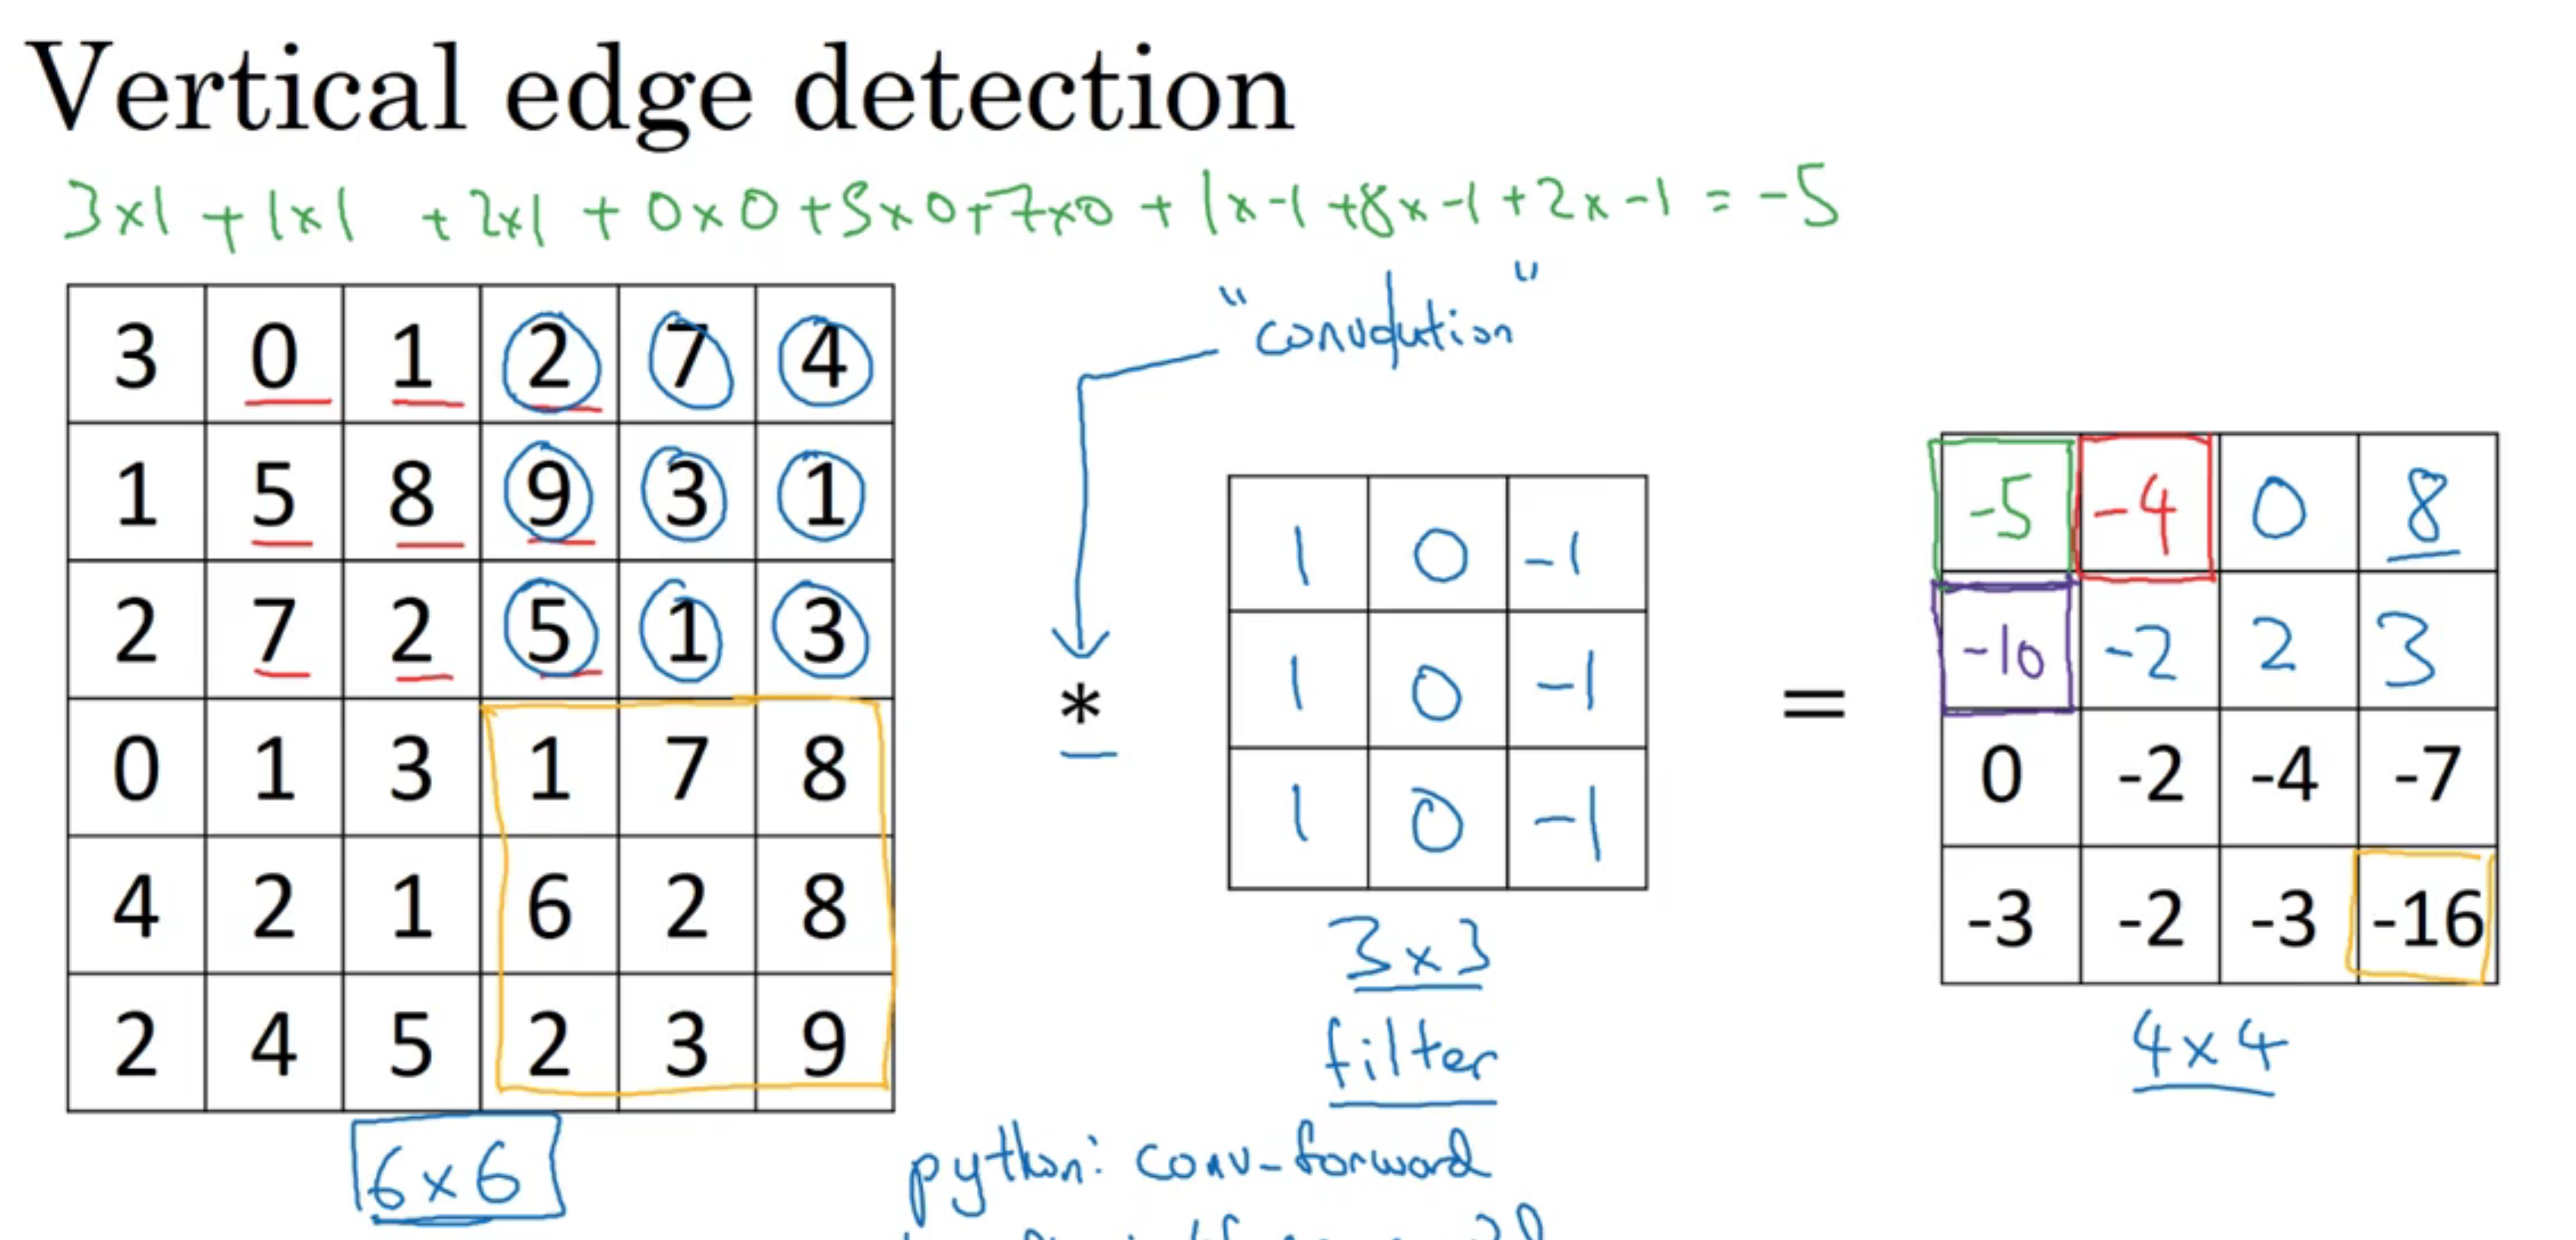 Vertical edge detection
3x1 + 1x1 + 2x1 + 0x0 + 5x0 + 7x0 + 1x-1 + 8x-1 + 2x-1 = -5
"convolution"
3 0 1 2 7 4
1 5 8 9 3 1
2 7 2 5 1 3
0 1 3 1 7 8
4 2 1 6 2 8
2 4 5 2 3 9
6x6
*
1 0 -1
1 0 -1
1 0 -1
3x3
filter
=
-5 -4 0 8
-10 -2 2 3
0 -2 -4 -7
-3 -2 -3 -16
4x4
python: conv-forward